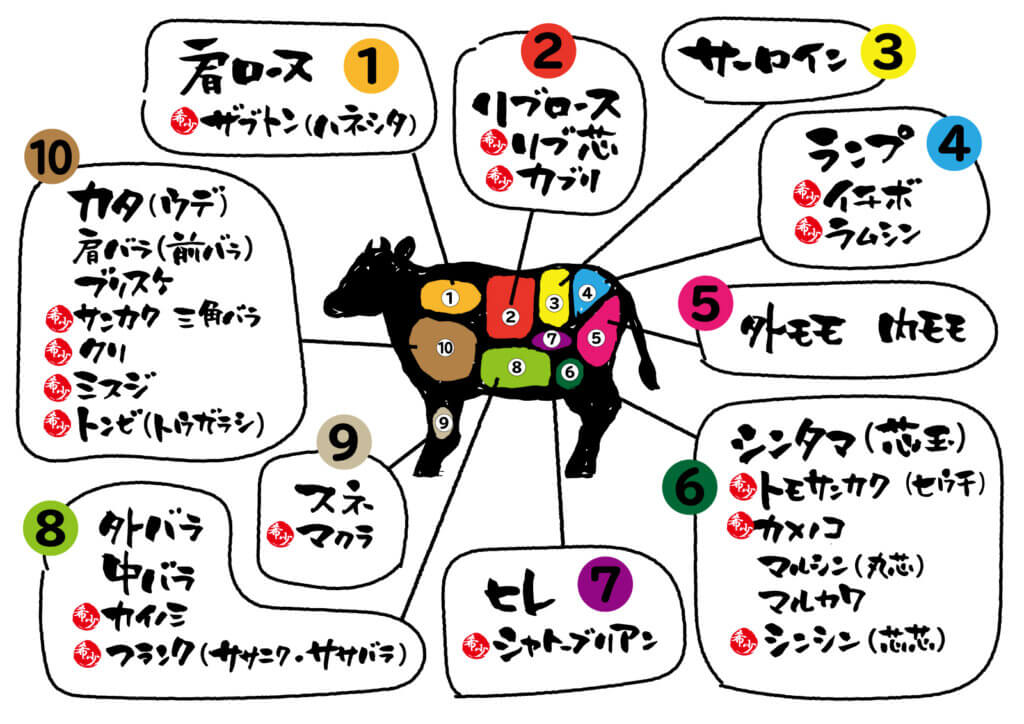 1
肩ロース
希少 ザブトン(ハネシタ)
2
リブロース
希少 リブ芯
希少 カブリ
3
サーロイン
4
ランプ
希少 イチボ
希少 ラムシン
5
外モモ 内モモ
6
シンタマ(芯玉)
希少 トモサンカク(ヒウチ)
希少 カメノコ
マルシン(丸芯)
マルカワ
希少 シンシン(芯芯)
7
ヒレ
希少 シャトーブリアン
8
外バラ
中バラ
希少 カイノミ
希少 フランク(ササニク・ササバラ)
9
スネ
希少 マクラ
10
カタ(ウデ)
肩バラ(前バラ)
ブリスケ
希少 サンカク 三角バラ
希少 クリ
希少 ミスジ
希少 トンビ(トウガラシ)
1
2
3
4
5
6
7
8
9
10